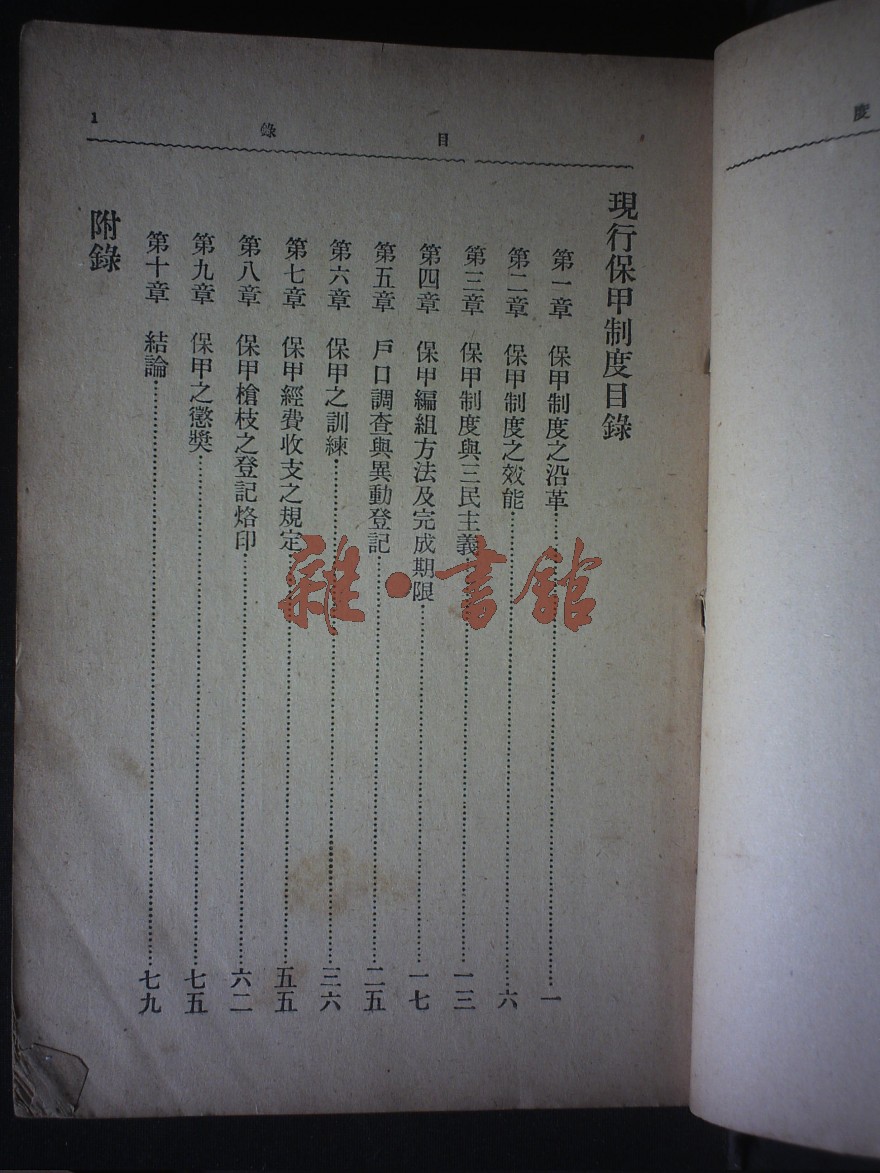 目錄
1
現行保甲制度目錄
第一章 保甲制度之沿革……一
第二章 保甲制度之效能……六
第三章 保甲制度與三民主義……一三
第四章 保甲編組方法及完成期限……一七
第五章 戶口調查與異動登記……二五
第六章 保甲之訓練……三六
第七章 保甲經費收支之規定……五五
第八章 保甲槍枝之登記烙印……六二
第九章 保甲之懲奬……七五
第十章 結論……七九
附錄
雜·書館
度